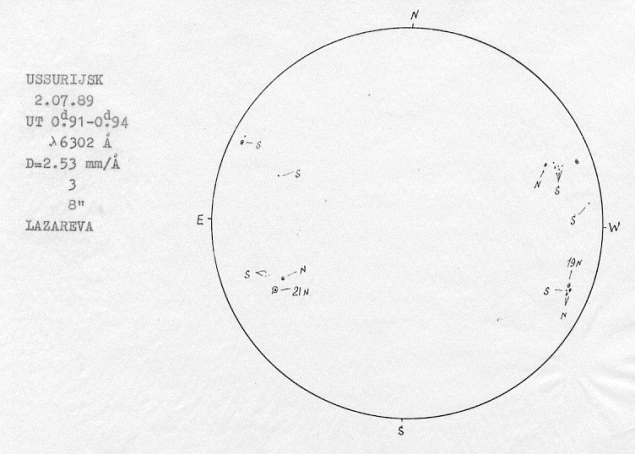 USSURIJSK
2.07.89
UT 0ᵈ.91-0ᵈ.94
λ6302 Å
D=2.53 mm/Å
3
8"
LAZAREVA
N
S
S
N
S
S
E
W
S
N
21N
19N
S
N
S